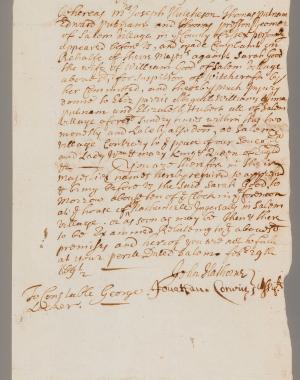 Whereas mrs Joseph Hutcheson Thomas putnam
Edward putnam and Thomas preston yeomen
of Salem Village in ye County of Essex personally
Appeared before us, and made Complaint on
Behalfe of theire Majests against Sarah Good
the wife of William Good of Salem Village
abovesd for suspition of Witchcrafts by
her Committed, and thereby much Injury
donne to Eliz parris Abigail Williams Anna
putnam and Elizabeth Hubert all of Salem
Village aforesd Sundry times within this two
moneths and Lately also don, at Salem
Village Contrary to ye peace of our Souern
and Lady Wm & mary King & Queen of Engld &c
You are Therefore in theire
majesties names hereby required to apprehend
& bring before us the said Sarah Good, to
morrow aboute ten of ye clock in ye forenoon
at ye house of Lt Nathaniell Ingersalls in Salem
Village. or as soon as may be then & there
to be Examined Relateing to ye abovesd
premises and hereof you are not to faile
at your perile Dated Salem febr 29th
1691/2
John Hathorne
Jonathan Corwin Assists
To Constable George
Locker.